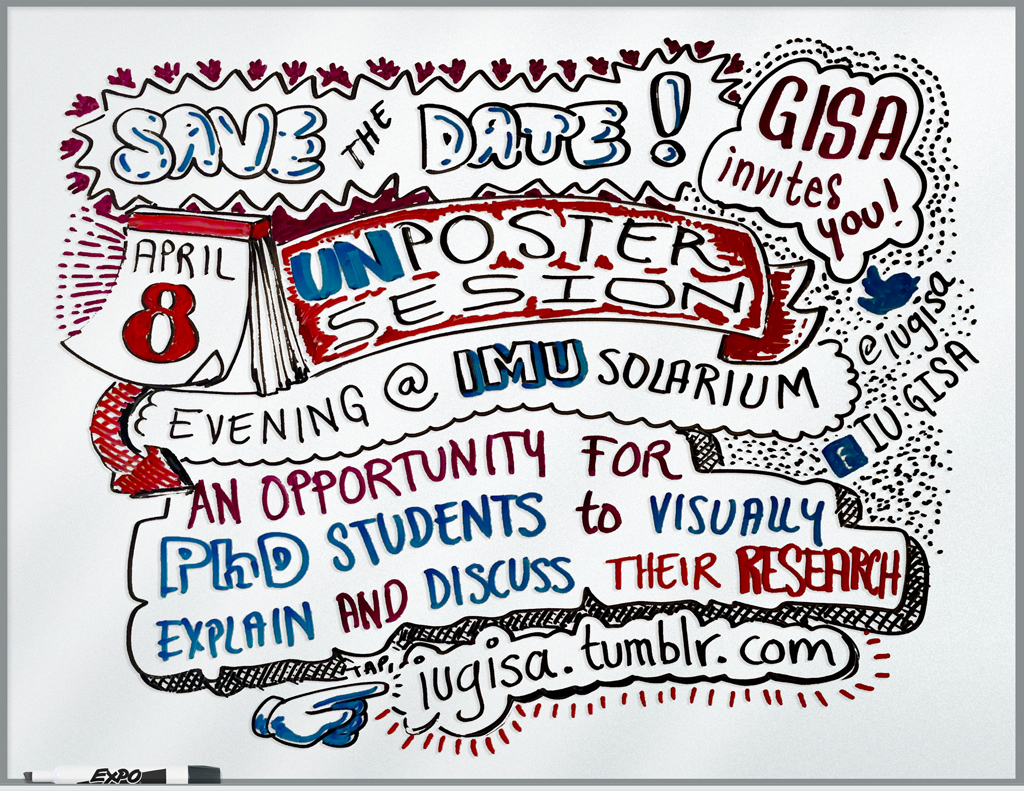 SAVE THE DATE!
GISA
invites
you!
APRIL
8
UNPOSTER
SESION
@iugisa
IU GISA
EVENING @ IMU SOLARIUM
AN OPPORTUNITY FOR
PhD STUDENTS to VISUALLY
EXPLAIN AND DISCUSS THEIR RESEARCH
TAP!
iugisa.tumblr.com
EXPO